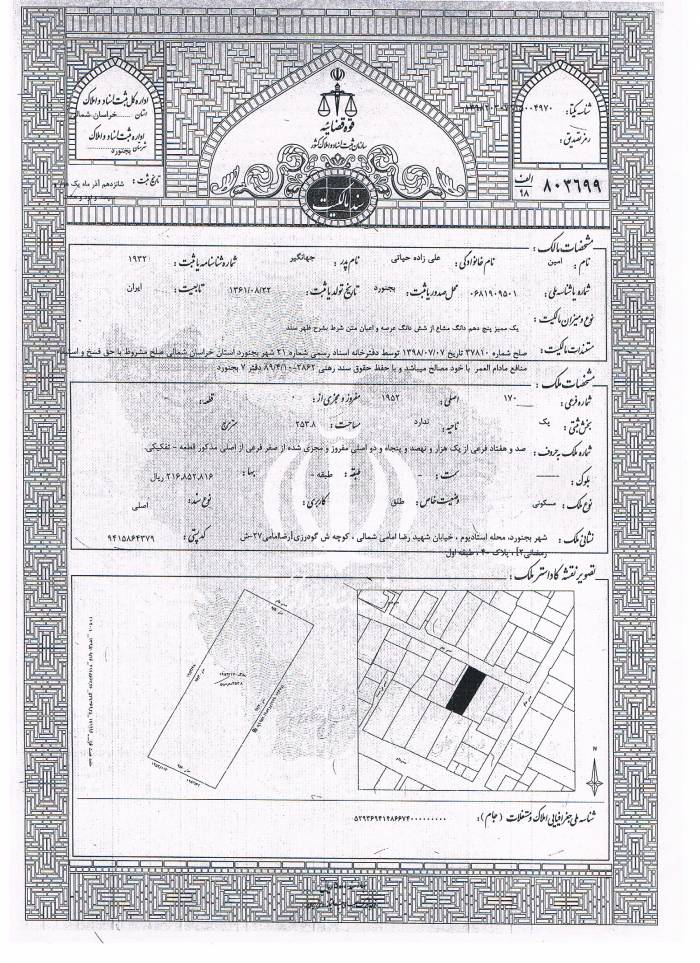 اداره کل ثبت اسناد و املاک
استان خراسان شمالی
اداره ثبت اسناد و املاک
شهرستان بجنورد
تاریخ ثبت : شانزدهم آذر ماه یک هزار و
قوه قضائیه
سازمان ثبت اسناد و املاک کشور
سند مالکیت
شناسه یکتا:
رمز تصدیق :
۸۰۳۶۹۹ الف ۹۸
مشخصات مالک :
نام : امین نام خانوادگی : علی زاده حیاتی نام پدر : جهانگیر شماره شناسنامه یا ثبت : ۱۹۳۲
شماره یا شناسه ملی : ۰۶۸۱۹۰۹۵۰۱ محل صدور یا ثبت : بجنورد تاریخ تولد یا ثبت : ۱۳۶۱/۰۸/۲۲ تابعیت : ایران
نوع و میزان مالکیت : یک ممیز پنج دهم دانگ مشاع از شش دانگ عرصه و اعیان متن شرط بشرح ظهر سند
مستندات مالکیت : صلح شماره ۳۷۸۱۰ تاریخ ۱۳۹۸/۰۷/۰۷ توسط دفترخانه اسناد رسمی شماره ۲۱ شهر بجنورد استان خراسان شمالی صلح مشروط با حق فسخ و استیفاء
منافع مادام العمر با خود مصالح میباشد و با حفظ حقوق سند رهنی ۲۸۶۲-۸۹/۴/۱۰ دفتر ۷ بجنورد
مشخصات ملک :
شماره فرعی : ۱۷۰ اصلی : ۱۹۵۲ مفروز و مجزی از : ۰ قطعه : -
بخش ثبتی : یک ناحیه : ندارد مساحت : ۲۵۳.۸ مترمربع
شماره ملک به حروف : صد و هفتاد فرعی از یک هزار و نهصد و پنجاه و دو اصلی مفروز و مجزی شده از صفر فرعی از اصلی مذکور قطعه - تفکیکی.
بلوک : سمت : - طبقه : طبقه - بها : ۲۱۶,۸۵۲,۸۱۶ ریال
نوع ملک : مسکونی وضعیت خاص : طلق کاربری : نوع سند : اصلی
نشانی ملک : شهر بجنورد، محله استادیوم ، خیابان شهید رضا امامی شمالی ، کوچه ش گودرزی[رضاامامی۲۷-ش کد پستی : ۹۴۱۵۸۶۴۳۷۹
رمضانی۲] ، پلاک ۴۰ ، طبقه اول
تصویر نقشه کاداستر ملک :
N
شناسه ملی جغرافیایی املاک و مستغلات (جام) : ۵۲۹۳۶۹۴۱۴۸۶۶۷۴۰۰۰۰۰۰۰۰۰۰